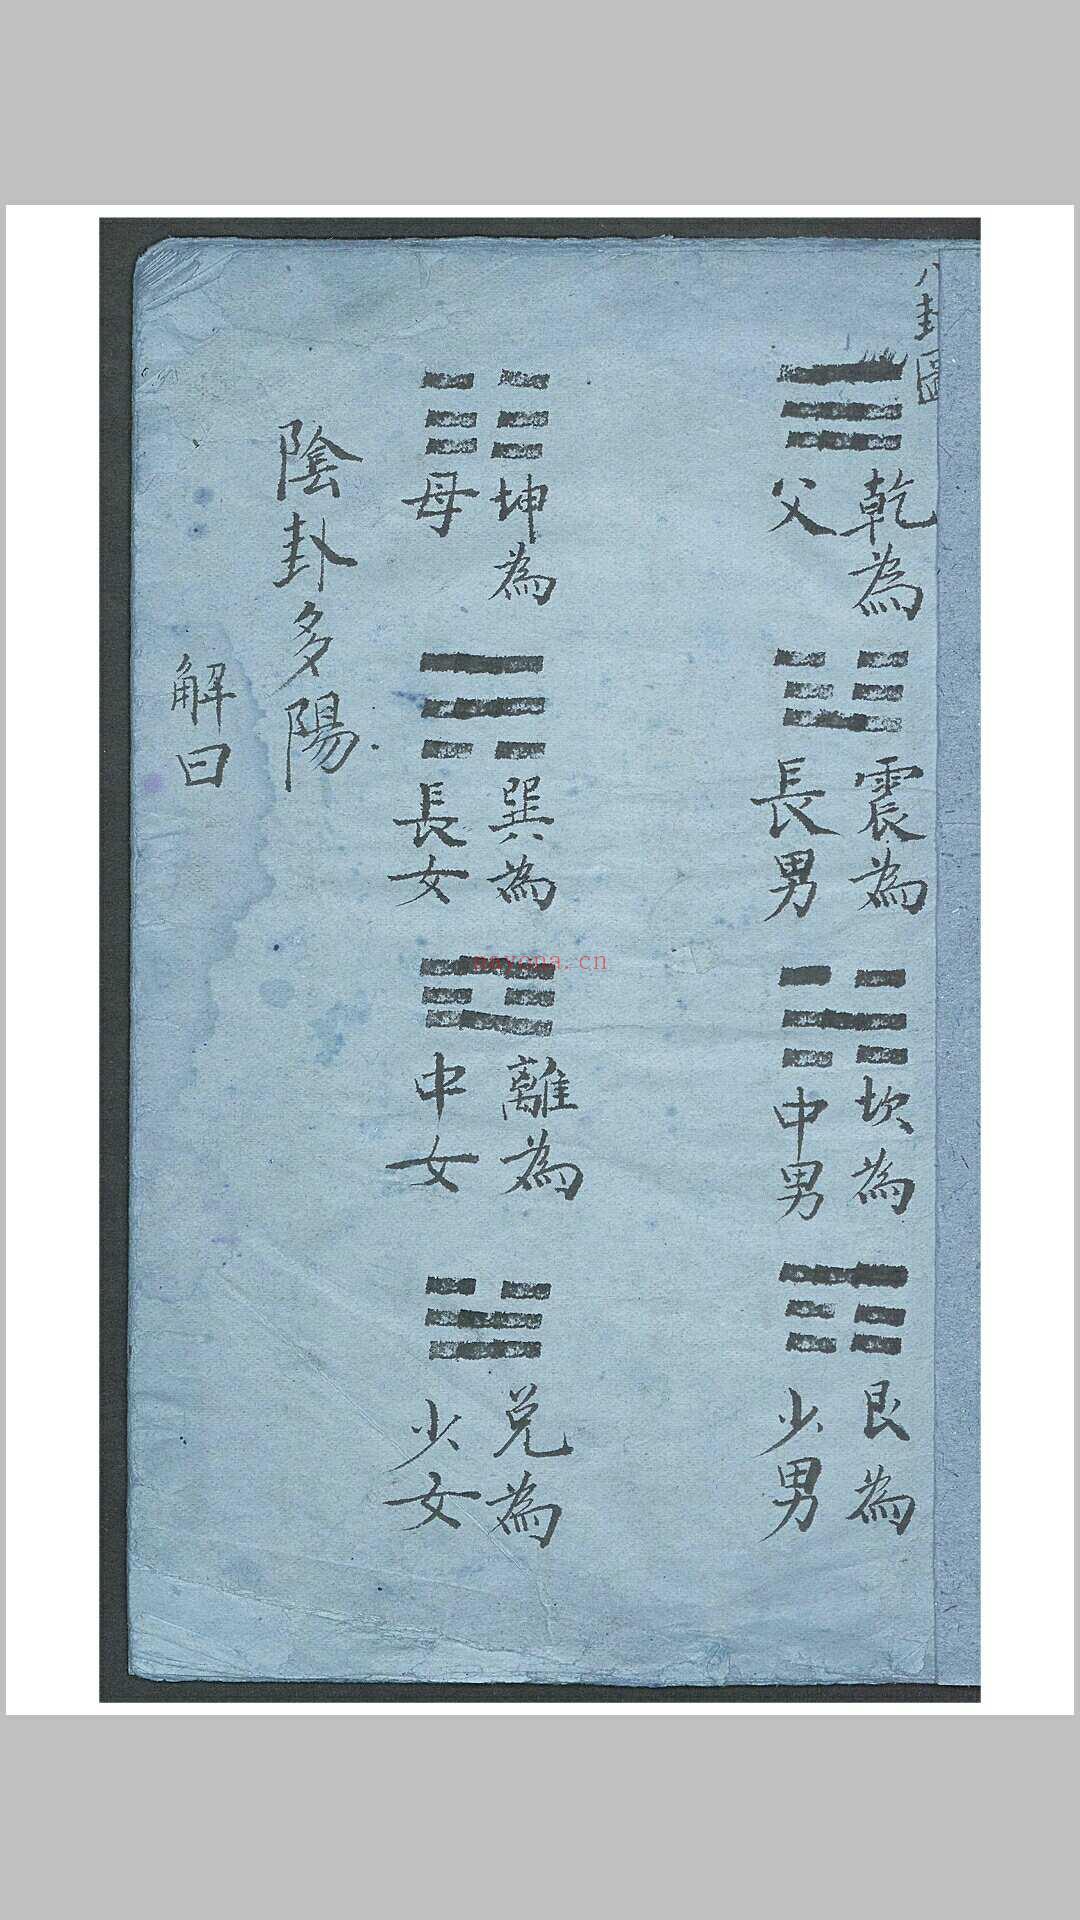 八卦圖
☰
乾為
父
☳
震為
長男
☵
坎為
中男
☶
艮為
少男
☷
坤為
母
☴
巽為
長女
☲
離為
中女
☱
兌為
少女
陰卦多陽
解曰
nayona.cn